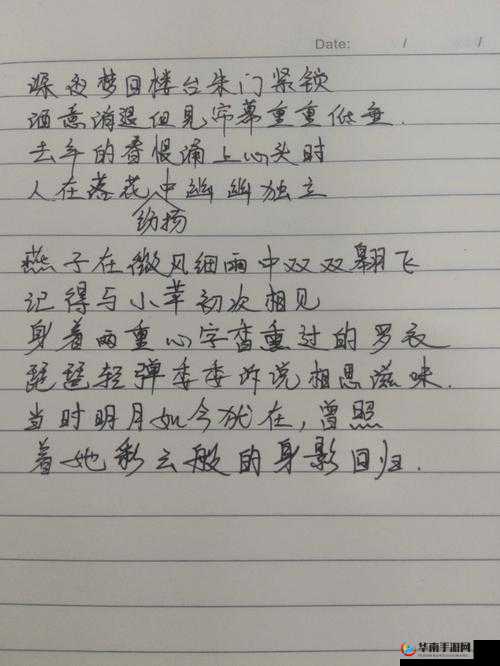 Date: / /
深夜梦回楼台朱门紧锁
酒意消退但见帘幕重重低垂.
去年的春恨涌上心头时
人在落花中幽幽独立
纷扬
燕子在微风细雨中双双翱飞
记得与小苹初次相见
身着两重心字香熏过的罗衣
琵琶轻弹委委诉说相思滋味.
当时明月如今犹在,曾照
着她彩云般的身影回归.
华南手游网